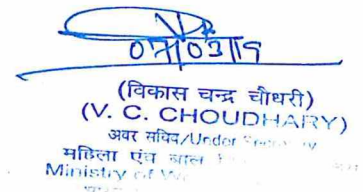 07/03/19
(विकास चन्द्र चौधरी)
(V. C. CHOUDHARY)
अवर सचिव/Under
महिला एंव बाल
Ministry of